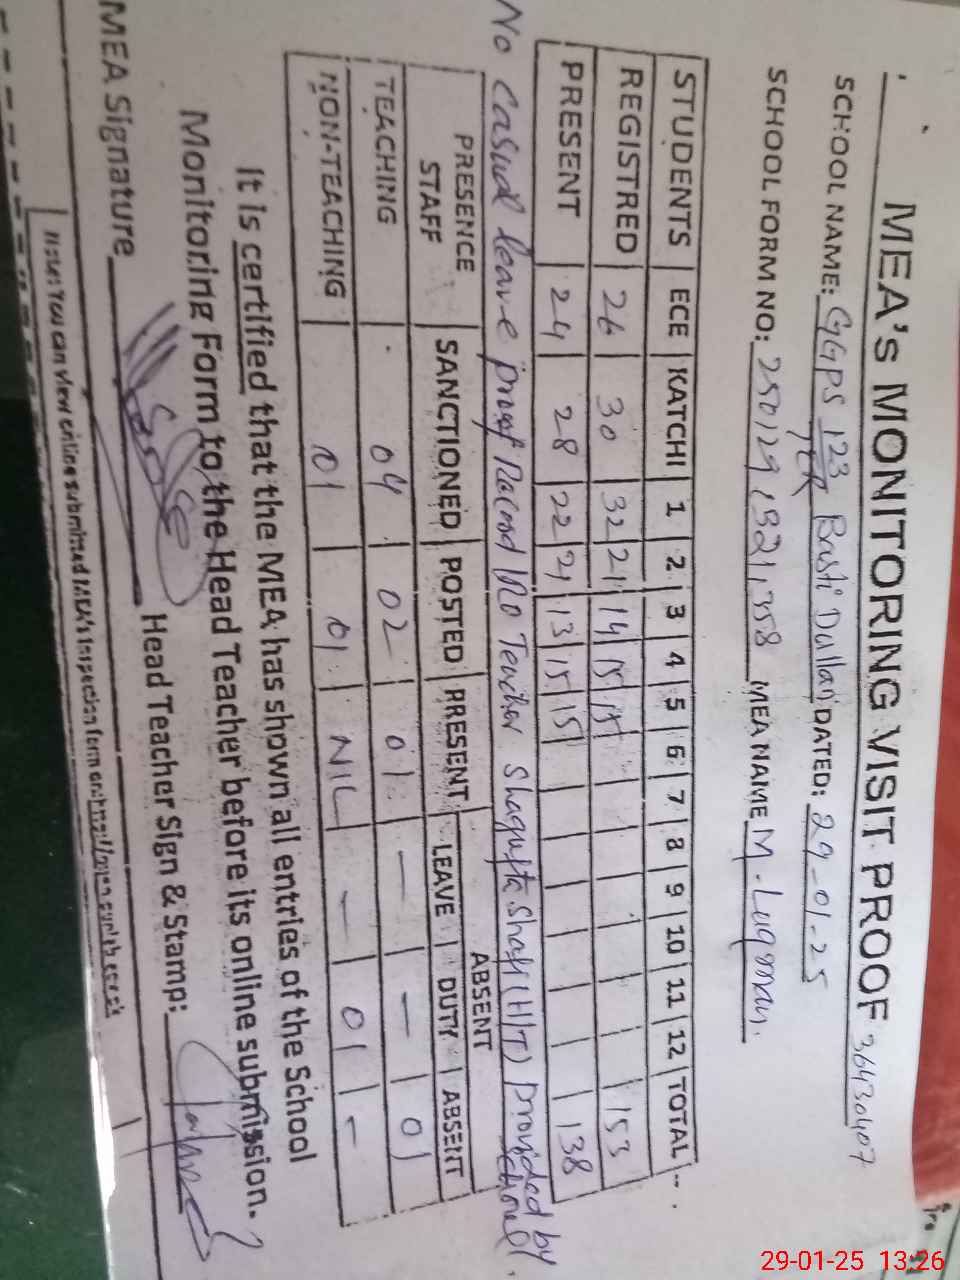 MEA's MONITORING VISIT PROOF 36430407
SCHOOL NAME: GGPS 123/TDA Basti Dullan DATED: 29-01-25
SCHOOL FORM NO: 250129182135 MEA NAME M. Luqman.
STUDENTS ECE KATCHI 1 2 3 4 5 6 7 8 9 10 11 12 TOTAL
REGISTRED 26 30 32 21 14 15 15 153
PRESENT 24 28 22 21 13 15 15 138
No casual leave proof Record No Teacher Shagufta Shafi (H/T) provided by
PRESENCE STAFF SANCTIONED POSTED PRESENT ABSENT
LEAVE DUTY ABSENT
TEACHING 04 02 01 — — 01
NON-TEACHING 01 01 NIL — 01 -
It is certified that the MEA has shown all entries of the School
Monitoring Form to the Head Teacher before its online submission.
MEA Signature Head Teacher Sign & Stamp:
Note: You can view online submitted MEA's Inspection form on
29-01-25 13:26